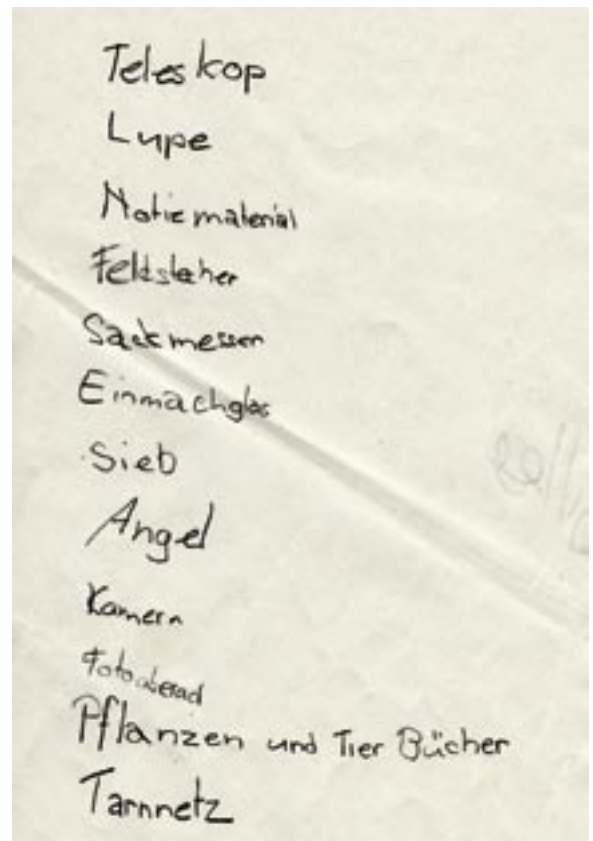 Teleskop
Lupe
Notizmaterial
Feldstecher
Sackmesser
Einmachglas
Sieb
Angel
Kamera
Pflanzen und Tier Bücher
Tarnnetz